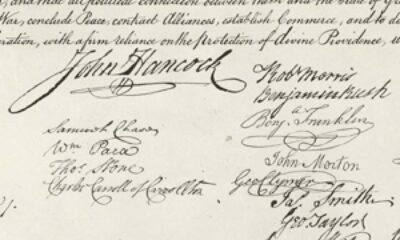 and that all political connection between them and the State of Gr
War, conclude Peace, contract Alliances, establish Commerce, and to do
ration, with a firm reliance on the protection of divine Providence, w
John Hancock
Robt Morris
Benjamin Rush
Benja Franklin
John Morton
Geo Clymer
Jas Smith
Geo Taylor
Samuel Chase
Wm Paca
Thos Stone
Charles Carroll of Carrollton